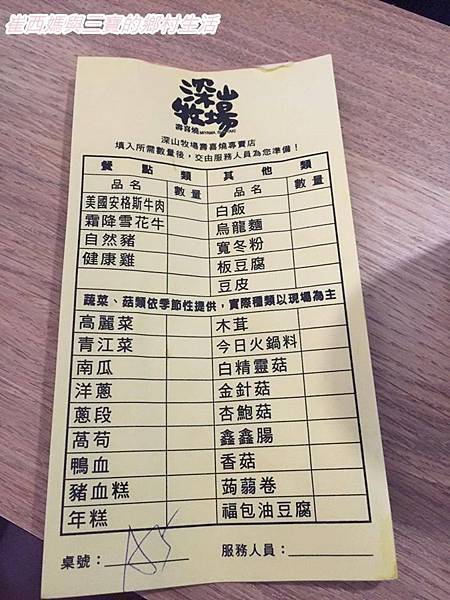 崔西媽與三寶的鄉村生活
深山牧場
壽喜燒
深山牧場壽喜燒專賣店
填入所需數量後，交由服務人員為您準備！
餐點類 其他類
品名 數量 品名 數量
美國安格斯牛肉 白飯
霜降雪花牛 烏龍麵
自然豬 寬冬粉
健康雞 板豆腐
豆皮
蔬菜、菇類依季節性提供，實際種類以現場為主
高麗菜 木茸
青江菜 今日火鍋料
南瓜 白精靈菇
洋蔥 金針菇
蔥段 杏鮑菇
萵苟 鑫鑫腸
鴨血 香菇
豬血糕 蒟蒻卷
年糕 福包油豆腐
桌號： 服務人員：